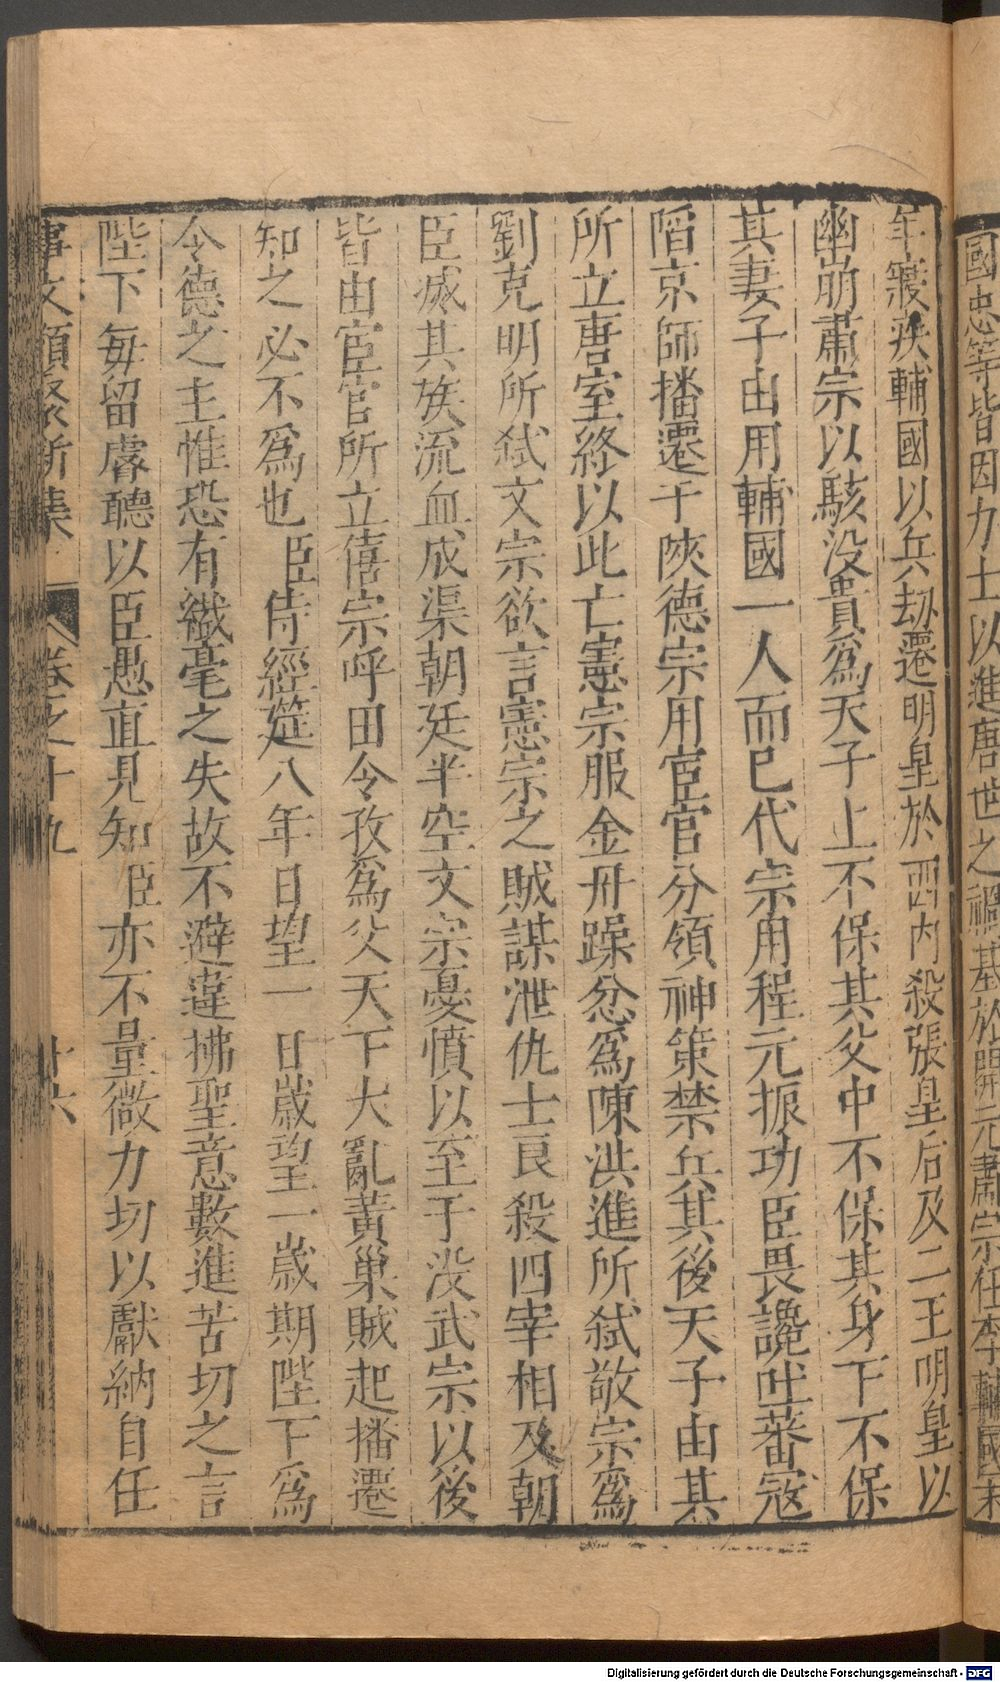 國忠等皆因力士以進唐世之禍基於開元肅宗任李輔國末
年寢疾輔國以兵劫遷明皇於西内殺張皇后及二王明皇以
幽崩肅宗以駭没貴爲天子上不保其父中不保其身下不保
其妻子由用輔國一人而已代宗用程元振功臣畏讒吐蕃寇
陷京師播遷于陜德宗用宦官分領神策禁兵其後天子由其
所立唐室終以此亡憲宗服金丹躁忿爲陳洪進所弑敬宗爲
劉克明所弑文宗欲言憲宗之賊謀泄仇士良殺四宰相及朝
臣滅其族流血成渠朝廷半空文宗憂憤以至于没武宗以後
皆由宦官所立僖宗呼田令孜爲父天下大亂黄巢賊起播遷
知之必不爲也臣侍經筵八年日望一日歲望一歲期陛下爲
令德之主惟恐有纎毫之失故不避違拂聖意數進苦切之言
陛下毎留睿聽以臣愚直見知臣亦不量微力切以獻納自任
文類聚新集 卷之十九 十六
Digitalisierung gefördert durch die Deutsche Forschungsgemeinschaft - DFG